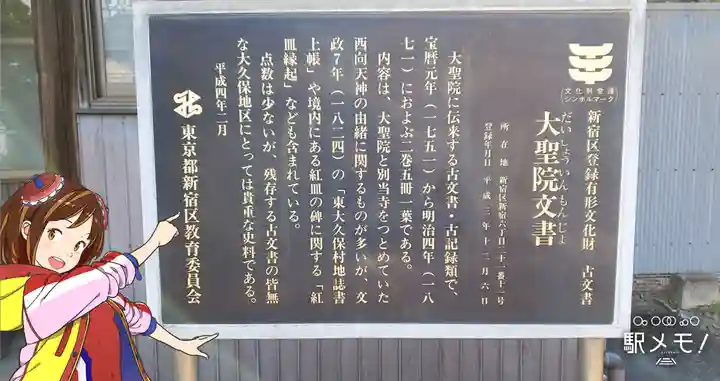 文化財愛護
シンボルマーク
新宿区登録有形文化財 古文書
だいしょういんもんじょ
大聖院文書
所在地 新宿区新宿六丁目二十一番十一号
登録年月日 平成三年十二月六日
大聖院に伝来する古文書・古記録類で、
宝暦元年(一七五一)から明治四年(一八
七一)におよぶ二巻五冊一葉である。
内容は、大聖院と別当寺をつとめていた
西向天神の由緒に関するものが多いが、文
政7年(一八二四)の「東大久保村地誌書
上帳」や境内にある紅皿の碑に関する「紅
皿縁起」なども含まれている。
点数は少ないが、残存する古文書の皆無
な大久保地区にとっては貴重な史料である。
平成四年二月
東京都新宿区教育委員会
駅メモ!